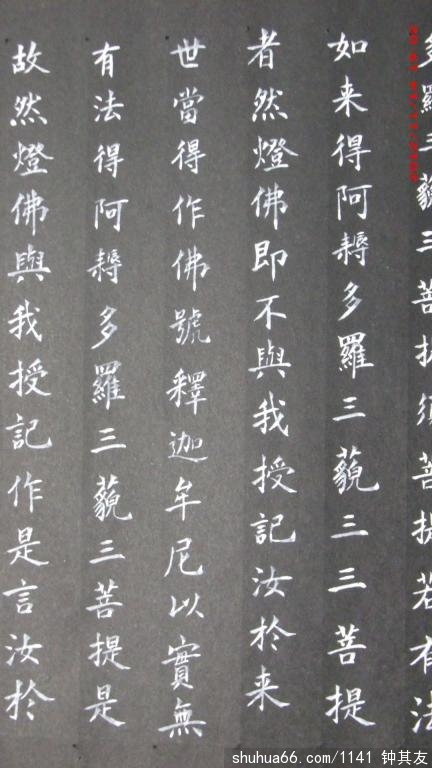 多羅三藐三菩提須菩提若有法
如来得阿耨多羅三藐三三菩提
者然燈佛即不與我授記汝於来
世當得作佛號釋迦牟尼以實無
有法得阿耨多羅三藐三菩提是
故然燈佛與我授記作是言汝於
shuhua66.com/1141 钟其友